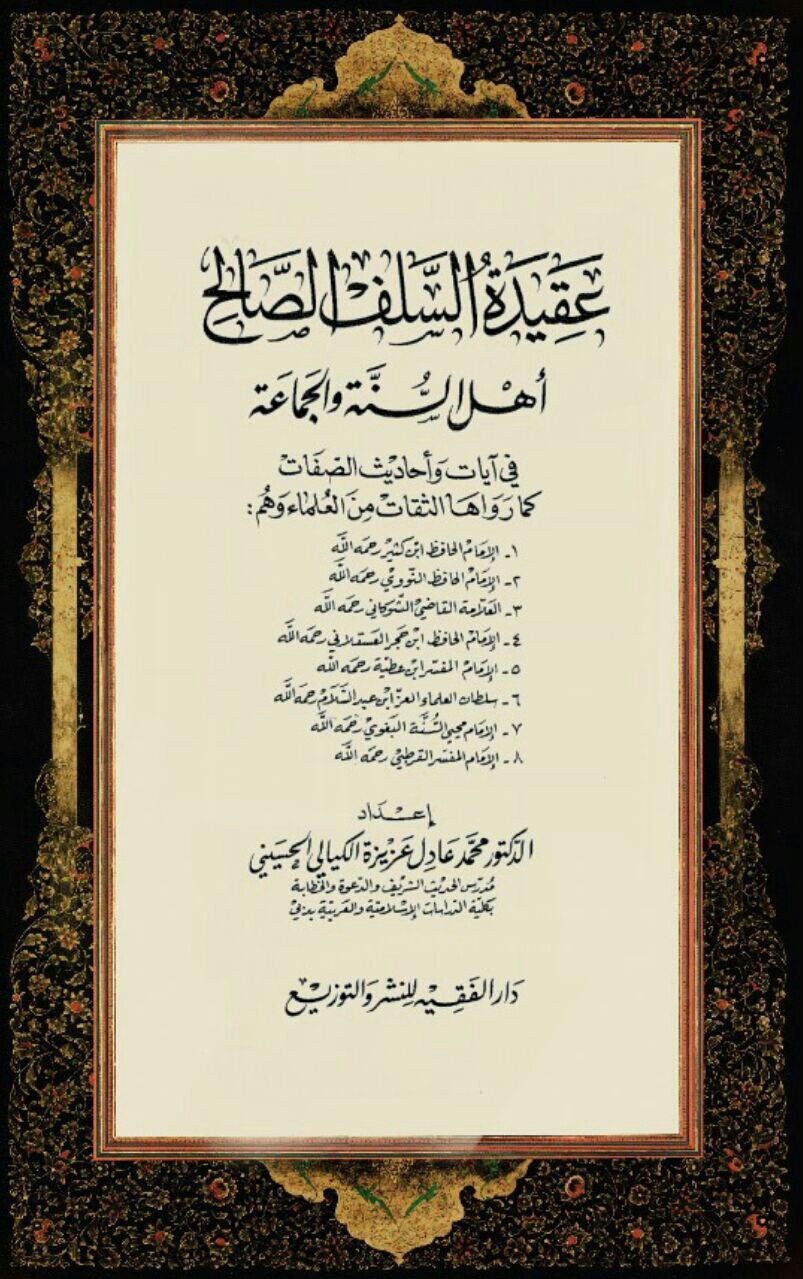 عَقِيدَةُ السَّلَفِ الصَّالِحِ
أهْل السُّنَّة والجَمَاعَة
في آيات وَأحاديث الصّفَات
كما رَوَاهَا الثقات مِنَ العُلماء وَهُم:
١ـ الإمَام الحافظ ابن كثير رحمَه الله
٢ـ الإمَام الحافظ النّووي رحمَه الله
٣ـ العَلّامة القاضي الشّوكاني رحمَه الله
٤ـ الإمَام الحافظ ابن حجر العسقلاني رحمَه الله
٥ـ الإمَام المفسّر ابن عطيّة رحمَه الله
٦ـ سلطان العلماء العزّ ابن عبد السَّلَام رحمَه الله
٧ـ الإمَام محيي السُّنَّة البَغوي رحمَه الله
٨ـ الإمَام المفسّر القرطبي رحمَه الله
إعْـدَاد
الدّكتور محمَّد عَادِل عَزيزة الكيالي الحسَيني
مُدَرّس الحديث الشّريف والدّعوة والخطابة
بكليّة الدّراسات الإسْلاميّة والعَربيّة بدُبي
دَار الفَقِيْه لِلنشر وَالتوزيْع